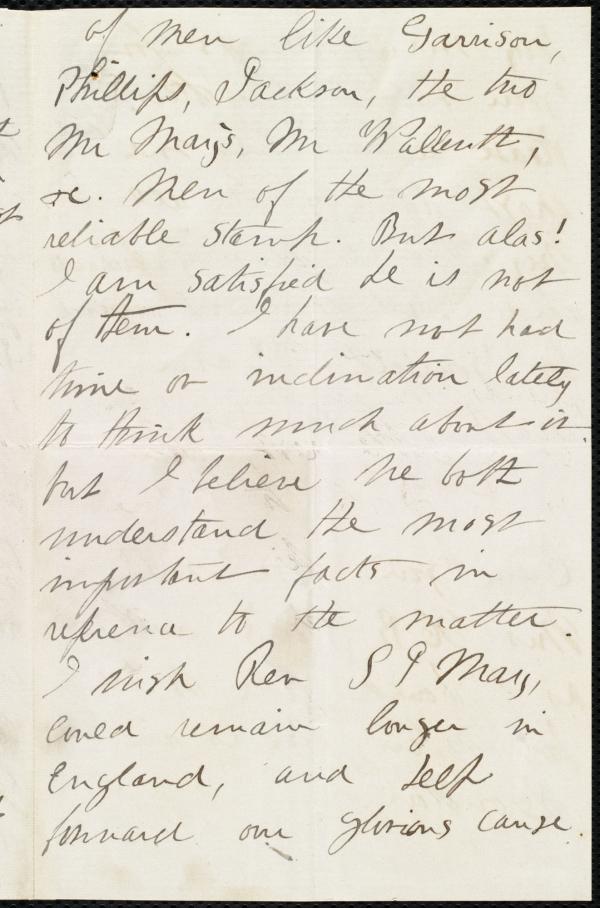 of men like Garrison,
Phillips, Jackson, the two
Mr Mays, Mr Wallcutt,
&c. Men of the most
reliable stamp. But alas!
I am satisfied he is not
of them. I have not had
time or inclination lately
to think much about it
but I believe we both
understand the most
important facts in
reference to the matter.
I wish Rev S J May,
could remain longer in
England, and help
forward our glorious cause